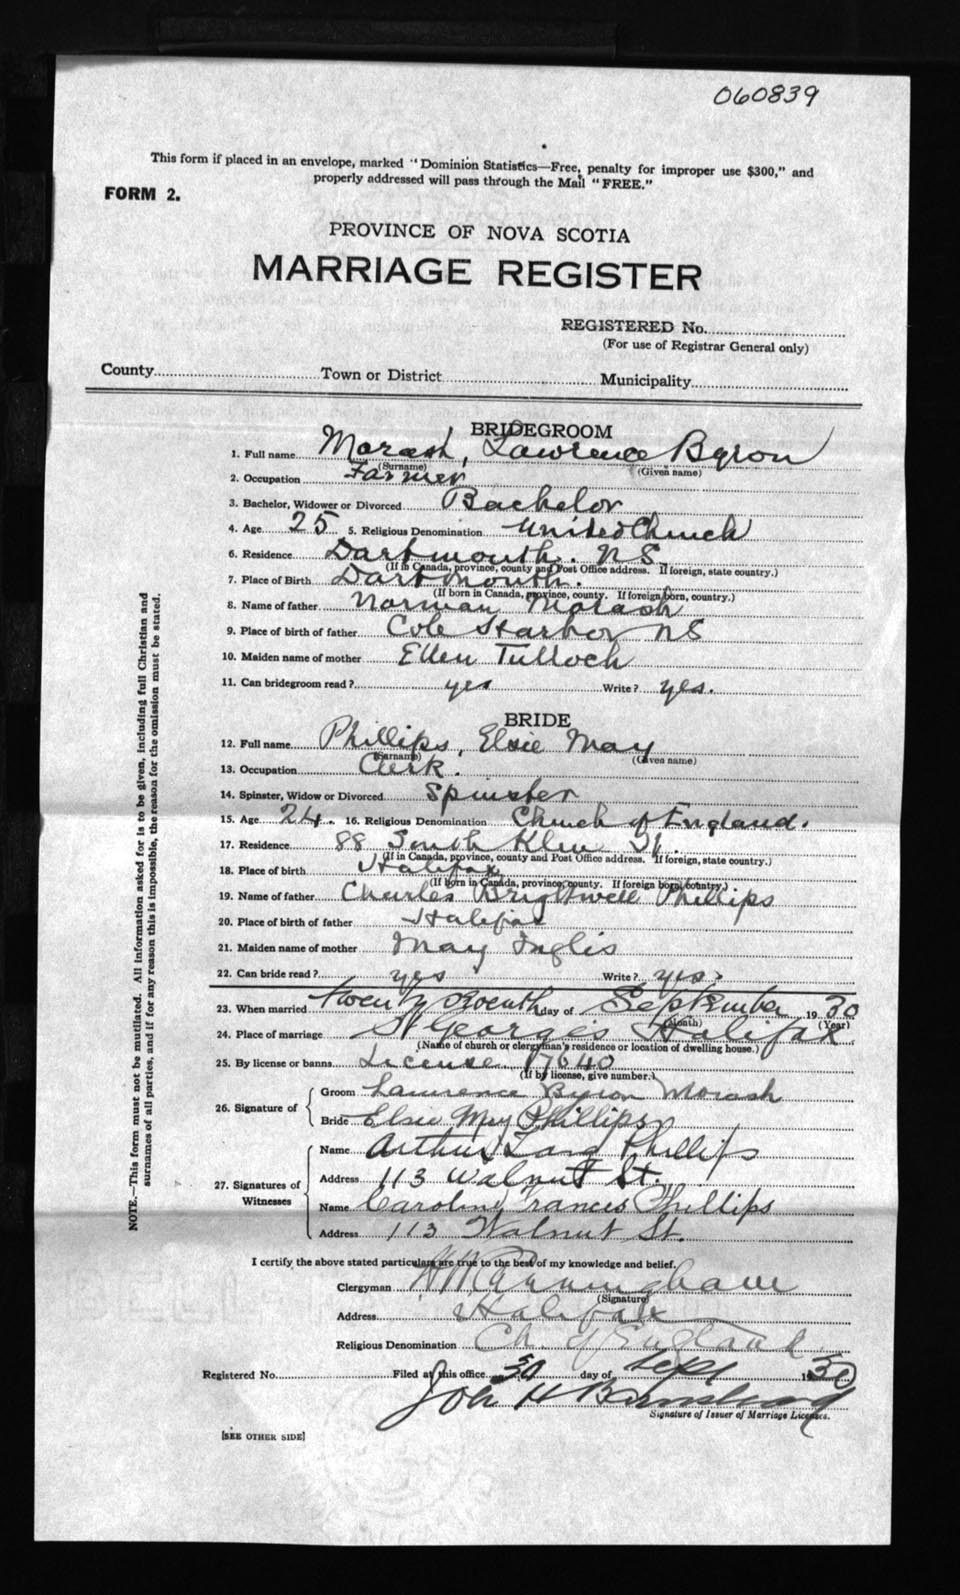 060839
This form if placed in an envelope, marked "Dominion Statistics—Free, penalty for improper use $300," and
properly addressed will pass through the Mail "FREE."
FORM 2.
PROVINCE OF NOVA SCOTIA
MARRIAGE REGISTER
REGISTERED No.
(For use of Registrar General only)
County Town or District Municipality
BRIDEGROOM
1. Full name Morash, Lawrence Byron
(Surname) (Given name)
2. Occupation Farmer
3. Bachelor, Widower or Divorced Bachelor
4. Age 25 5. Religious Denomination United Church
6. Residence Dartmouth. NS
(If in Canada, province, county and Post Office address. If foreign, state country.)
7. Place of Birth Dartmouth.
(If born in Canada, province, county. If foreign born, country.)
8. Name of father Norman Morash
9. Place of birth of father Cole Harbor NS
10. Maiden name of mother Ellen Tulloch
11. Can bridegroom read? yes Write? yes.
BRIDE
12. Full name Phillips, Elsie May
(Surname) (Given name)
13. Occupation Clerk.
14. Spinster, Widow or Divorced Spinster
15. Age 24. 16. Religious Denomination Church of England.
17. Residence 88 South Kline St.
(If in Canada, province, county and Post Office address. If foreign, state country.)
18. Place of birth Halifax
(If born in Canada, province, county. If foreign born, country.)
19. Name of father Charles Brightwell Phillips
20. Place of birth of father Halifax
21. Maiden name of mother May Inglis
22. Can bride read? yes Write? yes.
23. When married twenty seventh day of September 1930
(Month) (Year)
24. Place of marriage St George's Halifax.
(Name of church or clergyman's residence or location of dwelling house.)
25. By license or banns License 17640
(If by license, give number.)
26. Signature of
Groom Lawrence Byron Morash
Bride Elsie May Phillips
27. Signatures of Witnesses
Name Arthur Lang Phillips
Address 113 Walnut St.
Name Caroline Frances Phillips
Address 113 Walnut St.
I certify the above stated particulars are true to the best of my knowledge and belief.
Clergyman
(Signature)
Address Halifax
Religious Denomination Ch. of England
Registered No. Filed at this office 30 day of Sept 1930
John H
Signature of Issuer of Marriage Licenses.
[SEE OTHER SIDE]
NOTE.—This form must not be mutilated. All information asked for is to be given, including full Christian and
surnames of all parties, and if for any reason this is impossible, the reason for the omission must be stated.